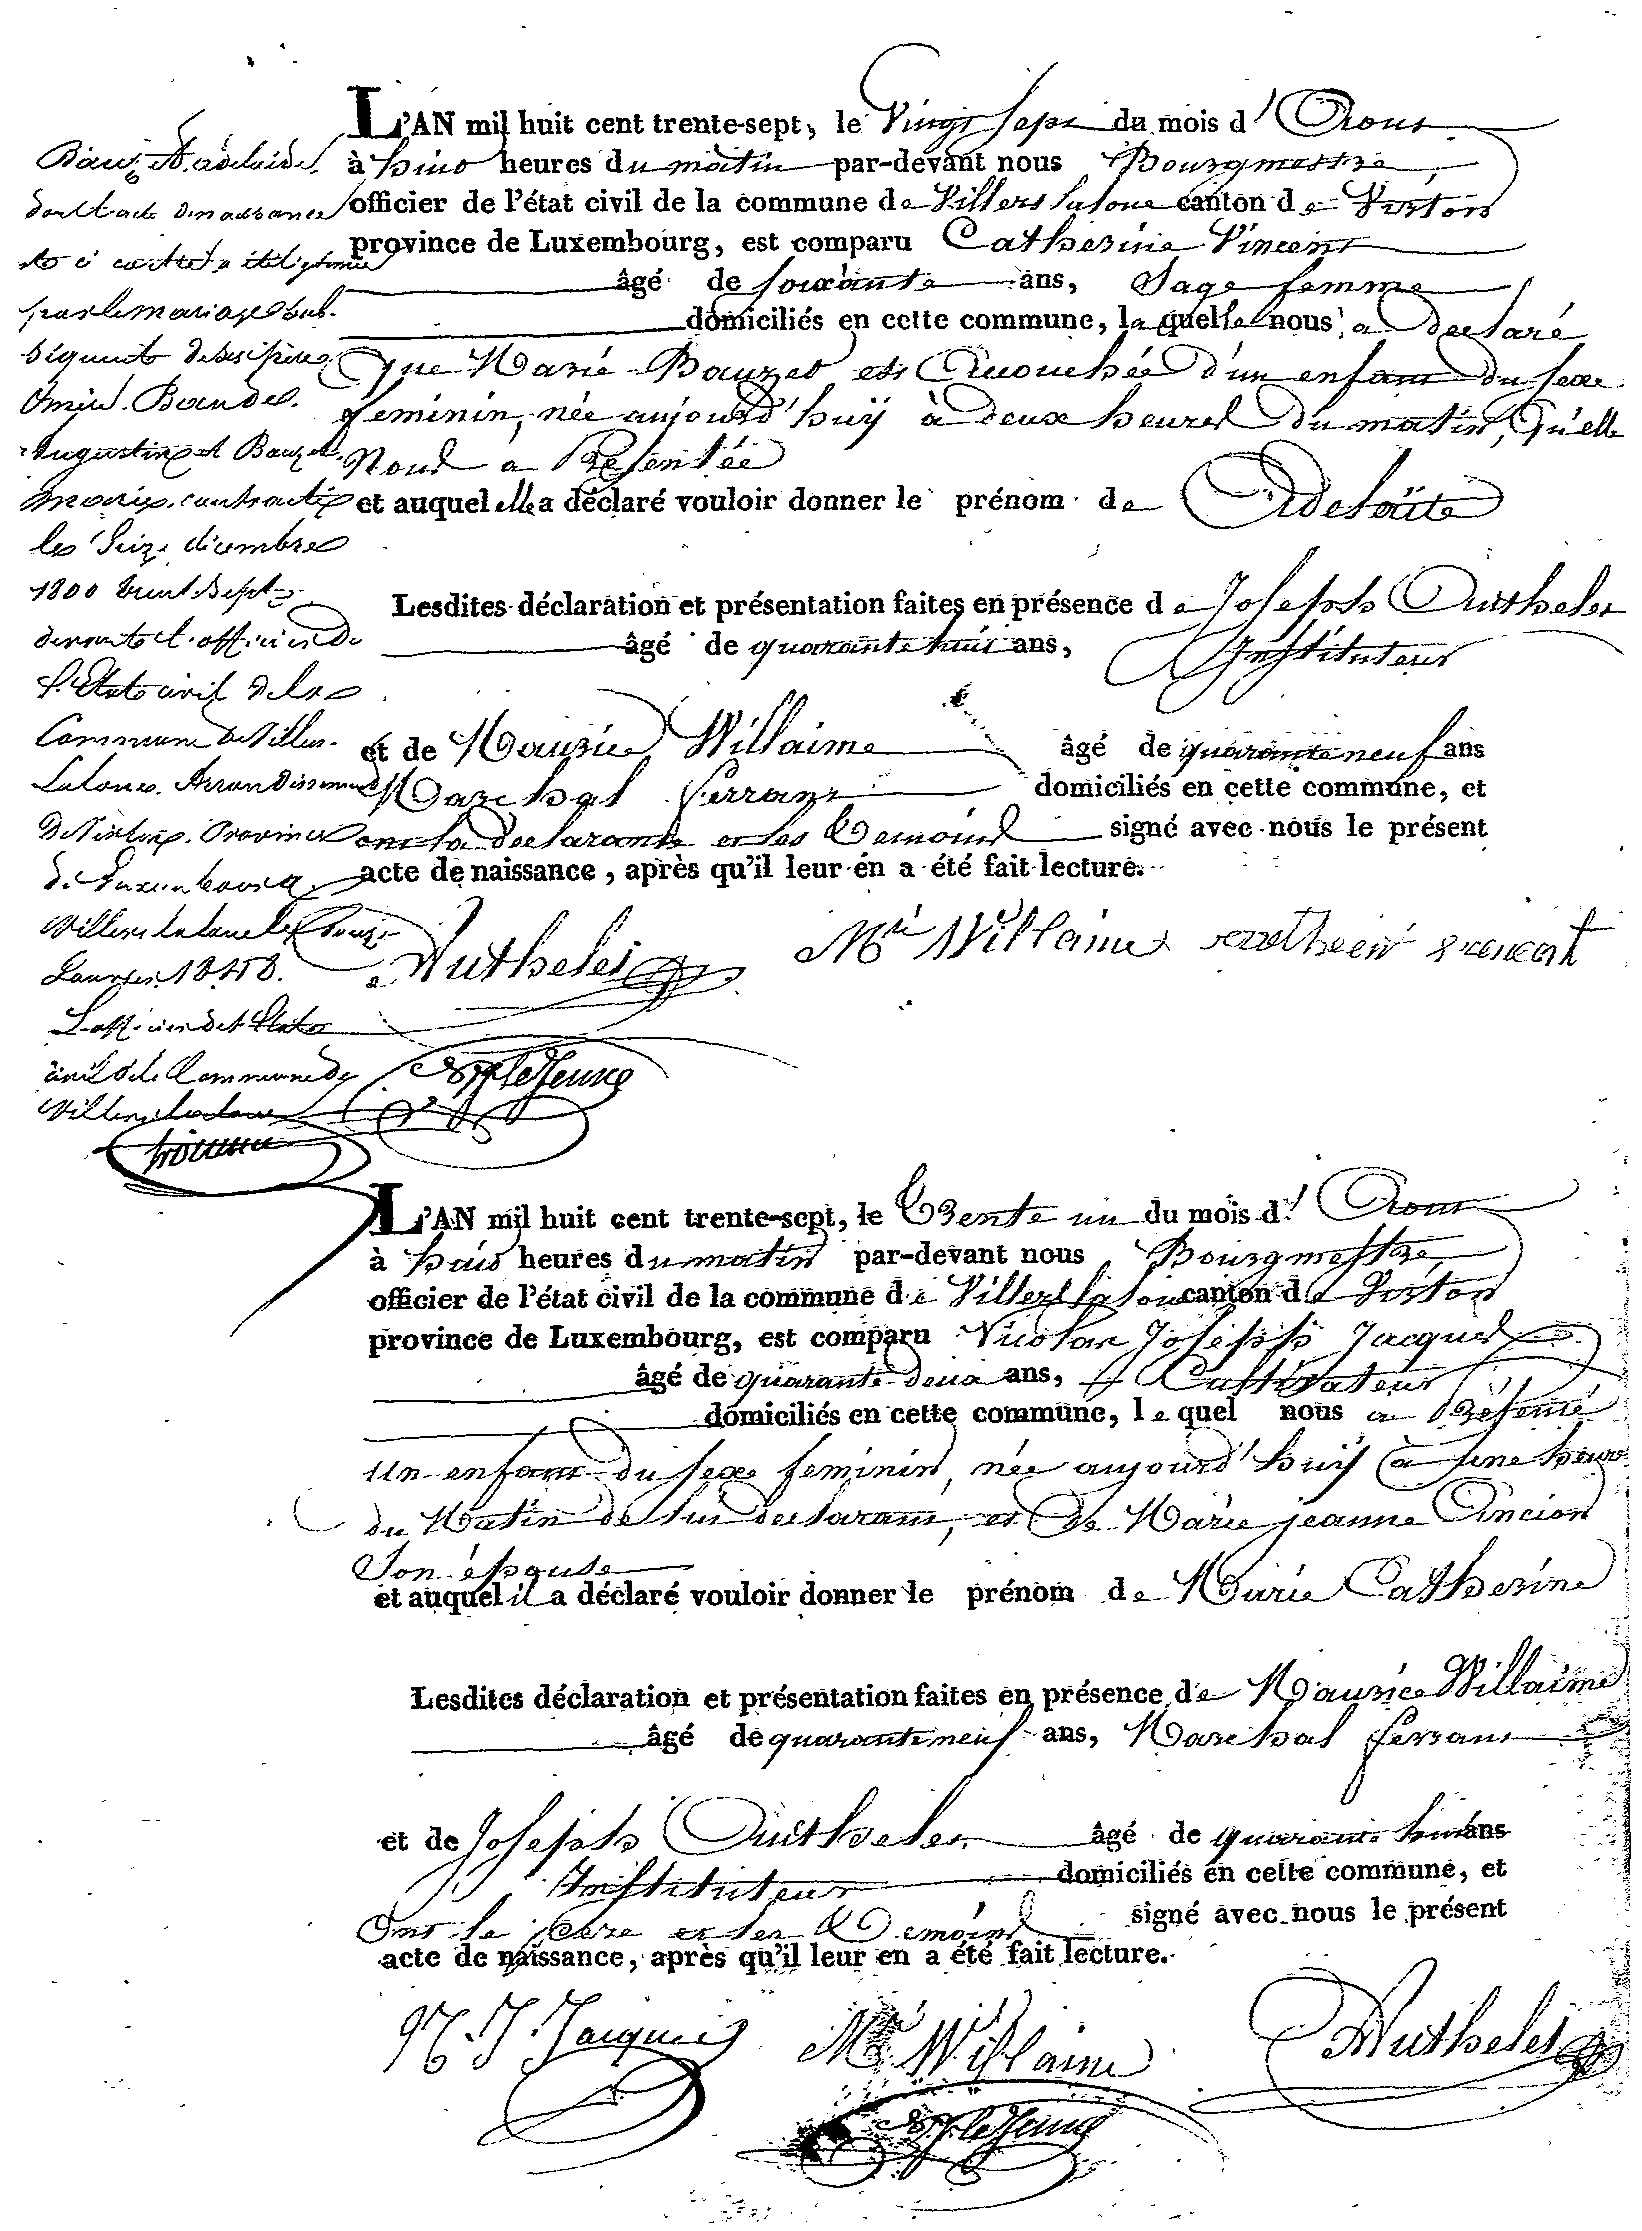 L'AN mil huit cent trente-sept, le Vingt Sept du mois d'Aout
à huit heures du matin par-devant nous Bourgmestre,
officier de l'état civil de la commune de Villers laloue canton de Virton
province de Luxembourg, est comparu Catherine Vincent
âgé de soixante ans, Sage femme
domiciliés en cette commune, laquelle nous a declaré
que Marie Bauzet est Accouchée d'un enfant du sexe
feminin, née aujourd'huÿ à deux heures du matin, Qu'elle
Nous a Présentée
et auquel elle a déclaré vouloir donner le prénom de Adelaïte
Lesdites déclaration et présentation faites en présence de Joseph Authelet
âgé de quarante huit ans, Instituteur
et de Maurice Willaime âgé de quarante neuf ans
Marechal ferrant domiciliés en cette commune, et
ont la declarante et les Temoins signé avec nous le présent
acte de naissance, après qu'il leur en a été fait lecture.
Authelet Mce Willaime catherin vencent
Lejeune
Adelaide
dont l'acte de naissance
est ci contre a été légitimée
par le mariage sub-
séquent de ses père
et mère. Baudet
Augustin et Bauzet
Marie, contracté
le Seize décembre
1800 trent Sept
devant l'officier de
l'État civil de la
Commune de Villers-
Laloue, Arrondissement
de Virton, Province
de Luxembourg.
Villers laloue le douze
Janvier 1838.
L'officier de l'État
civil de la Commune de
Villers laloue
L'AN mil huit cent trente-sept, le Trente un du mois d'Aout
à huit heures du matin par-devant nous Bourgmestre,
officier de l'état civil de la commune de Villers laloue canton de Virton
province de Luxembourg, est comparu Nicolas Joseph Jacques
âgé de quarante deux ans, Cultivateur
domiciliés en cette commune, lequel nous a Présenté
un enfant du sexe feminin, née aujourd'huÿ à une heure
du Matin de lui declarant, et de Marie jeanne Ancion
Son épouse
et auquel il a déclaré vouloir donner le prénom de Marie Catherine
Lesdites déclaration et présentation faites en présence de Maurice Willaime
âgé de quarante neuf ans, Marechal ferrant
et de Joseph Authelet âgé de quarante huit ans
Instituteur domiciliés en cette commune, et
Ont le père et les Temoins signé avec nous le présent
acte de naissance, après qu'il leur en a été fait lecture.
N. J. Jacques Mce Willaime Authelet
Lejeune